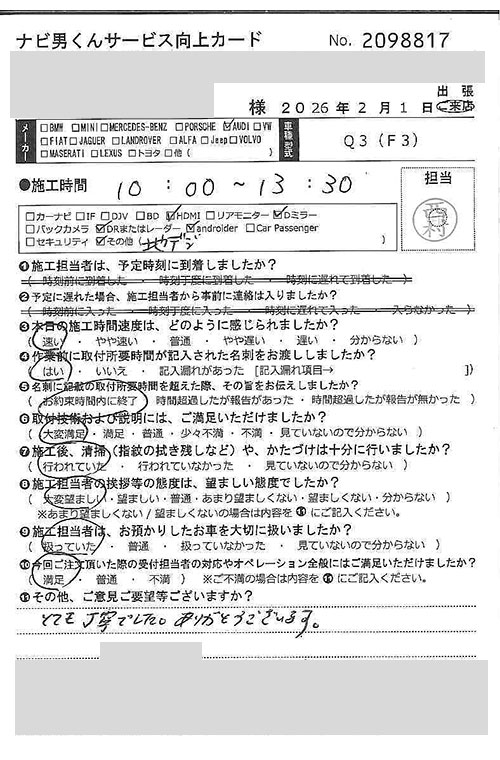 ナビ男くんサービス向上カード No. 2098817
様 2026年2月1日 出張 ・ ご来店
メーカー □BMW □MINI □MERCEDES-BENZ □PORSCHE ☑AUDI □VW
□FIAT □JAQUER □LANDROVER □ALFA □Jeep □VOLVO
□MASERATI □LEXUS □トヨタ □他 ( )
車種型式 Q3 (F3)
●施工時間 10:00～13:30
担当
□カーナビ □IF □DJV □BD ☑HDMI □リアモニター ☑Dミラー
□バックカメラ ☑DRまたはレーダー ☑androider □Car Passenger
□セキュリティ ☑その他 (地デジ )
❶施工担当者は、予定時刻に到着しましたか?
( 時刻前に到着した ・ 時刻丁度に到着した ・ 時刻に遅れて到着した )
❷予定に遅れた場合、施工担当者から事前に連絡は入りましたか?
( 時刻前に入った ・ 時刻丁度に入った ・ 時刻に遅れて入った ・ 入らなかった )
❸本日の施工時間速度は、どのように感じられましたか?
( 速い ・ やや速い ・ 普通 ・ やや遅い ・ 遅い ・ 分からない )
❹作業前に取付所要時間が記入された名刺をお渡ししましたか?
( はい ・ いいえ ・ 記入漏れがあった [記入漏れ項目→ ])
❺名刺に記載の取付所要時間を超えた際、その旨をお伝えしましたか?
( お約束時間内に終了 ・ 時間超過したが報告があった ・ 時間超過したが報告が無かった )
❻取付技術および説明には、ご満足いただけましたか?
( 大変満足 ・ 満足 ・ 普通 ・ 少々不満 ・ 不満 ・ 見ていないので分からない )
❼施工後、清掃（指紋の拭き残しなど）や、かたづけは十分に行いましたか?
( 行われていた ・ 行われていなかった ・ 見ていないので分からない )
❽施工担当者の挨拶等の態度は、望ましい態度でしたか?
( 大変望ましい ・ 望ましい ・ 普通 ・ あまり望ましくない ・ 望ましくない ・ 分からない )
※あまり望ましくない / 望ましくないの場合は内容を⓫にご記入ください。
❾施工担当者は、お預かりしたお車を大切に扱いましたか?
( 扱っていた ・ 普通 ・ 扱っていなかった ・ 見ていないので分からない )
❿今回ご注文頂いた際の受付担当者の対応やオペレーション全般にはご満足いただけましたか?
( 満足 ・ 普通 ・ 不満 ) ※ご不満の場合は内容を⓫にご記入ください。
⓫その他、ご意見ご要望等ございますか?
とても丁寧でした。ありがとうございます。